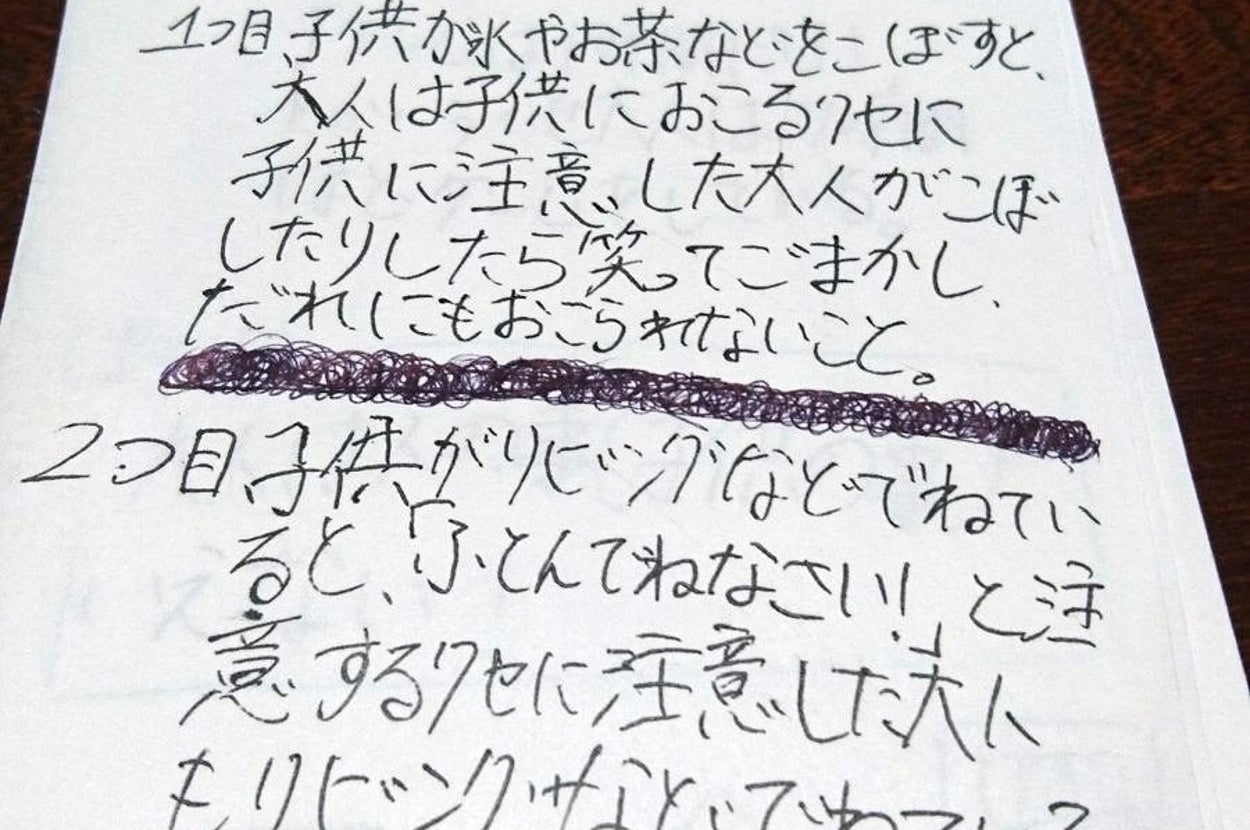 1つ目 子供が水やお茶などをこぼすと、
大人は子供におこるクセに
子供に注意した大人がこぼ
したりしたら笑ってごまかし、
だれにもおこられないこと。
2つ目 子供がリビングなどでねてい
ると、「ふとんでねなさい！と注
意するクセに注意した大人
もリビングなどでねている